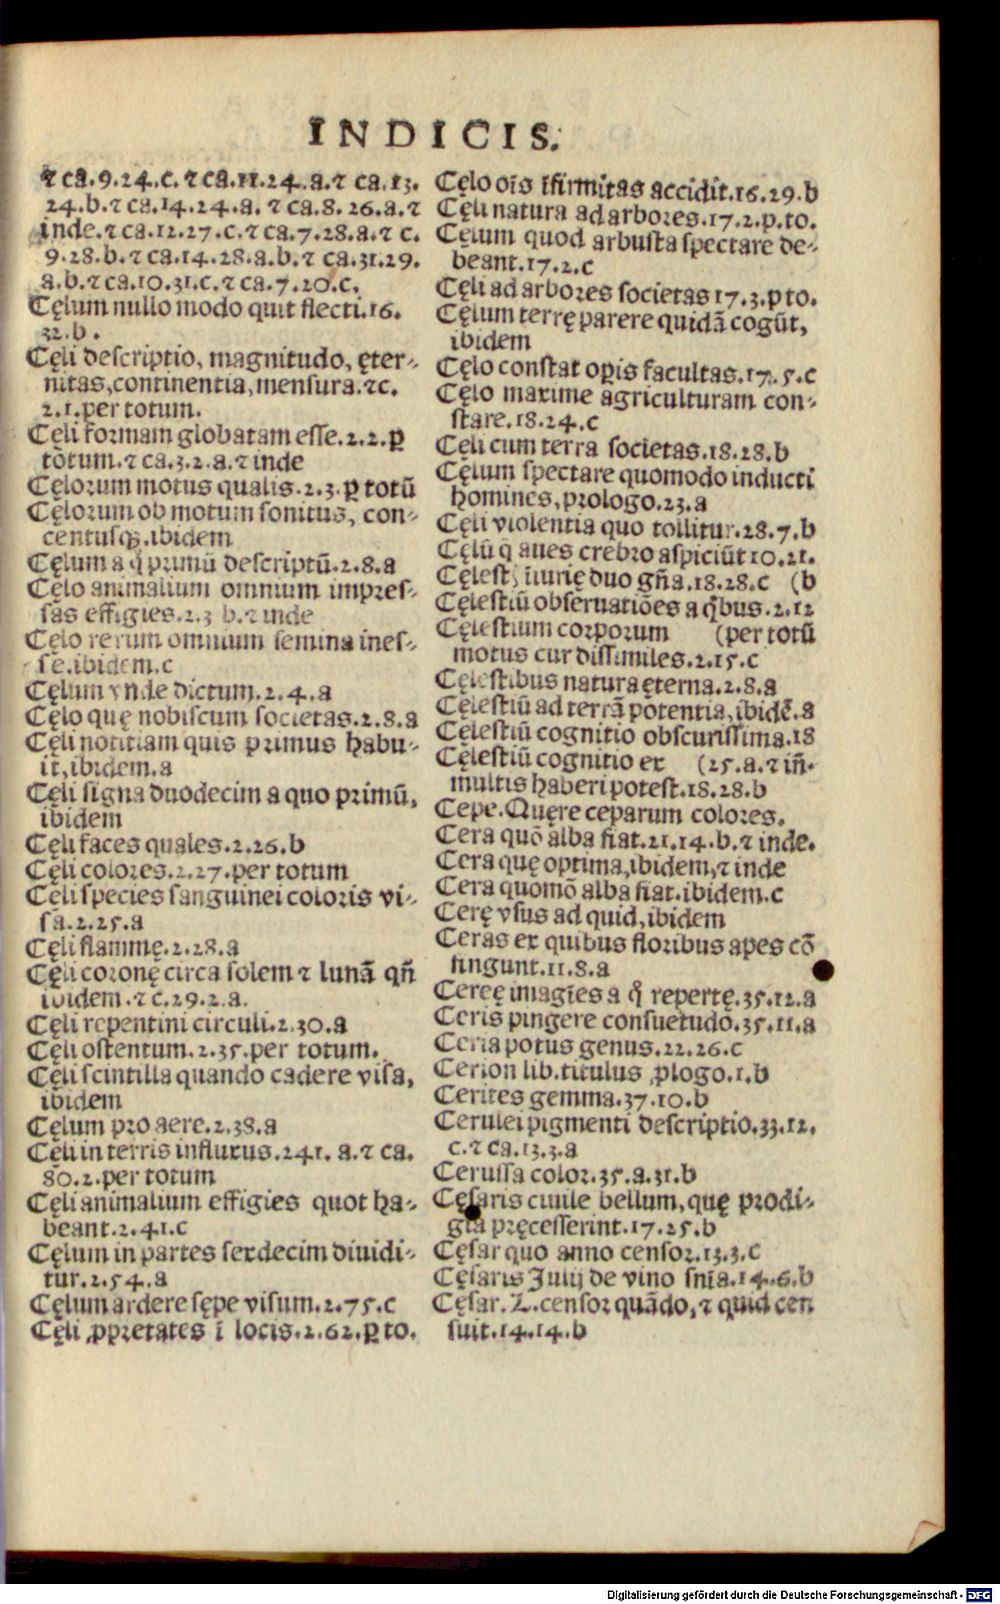 INDICIS.
⁊ ca.9.24.c.⁊ ca.11.24.a.⁊ ca.13.
24.b.⁊ ca.14.24.a.⁊ ca.8.26.a.⁊
inde.⁊ ca.12.27.c.⁊ ca.7.28.a.⁊ c.
9.28.b.⁊ ca.14.28.a.b.⁊ ca.31.29.
a.b.⁊ ca.10.31.c.⁊ ca.7.20.c.
Cęlum nullo modo quit flecti.16.
32.b.
Cęli descriptio, magnitudo, ęter-
nitas,continentia,mensura.⁊c.
2.1.per totum.
Cęli formam globatam esse.2.2.ꝑ
tōtum.⁊ ca.3.2.a.⁊ inde
Cęlorum motus qualis.2.3.ꝑ totū
Cęlorum ob motum sonitus, con-
centusqꝫ.ibidem
Cęlum a q̊ primū descriptū.2.8.a
Cęlo animalium omnium impres-
sas effigies.2.3 b.⁊ inde
Cęlo rerum omnium semina ines-
se.ibidem.c
Cęlum vnde dictum.2.4.a
Cęlo quę nobiscum societas.2.8.a
Cęli notitiam quis primus habu-
it,ibidem.a
Cęli signa duodecim a quo primū,
ibidem
Cęli faces quales.2.26.b
Cęli colores.2.27.per totum
Cęli species sanguinei coloris vi-
sa.2.25.a
Cęli flammę.2.28.a
Cęli coronę circa solem ⁊ lunā qñ
ibidem.⁊ c.29.2.a.
Cęli repentini circuli.2.30.a
Cęli ostentum.2.35.per totum.
Cęli scintilla quando cadere visa,
ibidem
Cęlum pro aere.2.38.a
Cęli in terris influxus.241.a.⁊ ca.
80.2.per totum
Cęli animalium effigies quot ha-
beant.2.41.c
Cęlum in partes sexdecim diuidi-
tur.2.54.a
Cęlum ardere sępe visum.2.75.c
Cęli ꝓpretates ī locis.2.62.ꝑ to.
Cęlo oīs īfirmitas accidit.16.29.b
Cęli natura ad arbores.17.2.p.to.
Cęlum quod arbusta spectare de-
beant.17.2.c
Cęli ad arbores societas 17.3.p to.
Cęlum terrę parere quidā cogūt,
ibidem
Cęlo constat oꝑis facultas.17.5.c
Cęlo maxime agriculturam con-
stare.18.24.c
Cęli cum terra societas.18.28.b
Cęlum spectare quomodo inducti
homines,prologo.23.a
Cęli violentia quo tollitur.28.7.b
Cęlū q̄ aues crebro aspiciūt 10.21.
Cęlestꝭ iniurię duo gña.18.28.c (b
Cęlestiū obseruatiōes a q̇bus.2.12
Cęlestium corporum (per totū
motus cur dissimiles.2.15.c
Cęlestibus natura ęterna.2.8.a
Cęlestiū ad terrā potentia,ibidē.a
Cęlestiū cognitio obscurissima.18
Cęlestiū cognitio ex (25.a.⁊ iñ.
multis haberi potest.18.28.b
Cepe.Quęre ceparum colores.
Cera quō alba fiat.21.14.b.⁊ inde.
Cera quę optima,ibidem,⁊ inde
Cera quomō alba fiat.ibidem.c
Cerę vsus ad quid,ibidem
Ceras ex quibus floribus apes cō
fingunt.11.8.a
Cereę imagīes a q̊ repertę.35.12.a
Ceris pingere consuetudo.35.11.a
Ceria potus genus.22.26.c
Cerion lib.titulus ꝓlogo.1.b
Cerites gemma.37.10.b
Cerulei pigmenti descriptio.33.12.
c.⁊ ca.13.3.a
Cerussa color.35.a.31.b
Cęsaris ciuile bellum,quę prodi-
gia pręcesserint.17.25.b
Cęsar quo anno censor.13.3.c
Cęsaris Julij de vino snīa.14.6.b
Cęsar.L.censor quādo,⁊ quid cen
suit.14.14.b
Digitalisierung gefördert durch die Deutsche Forschungsgemeinschaft - DFG